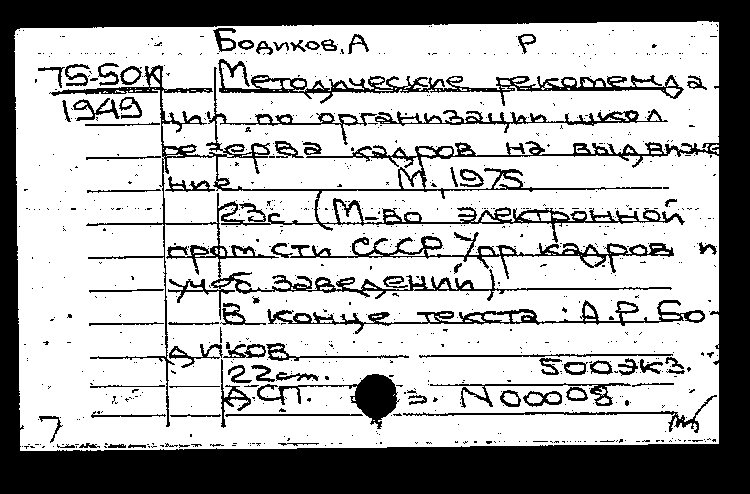 Бодиков, А Р
75-50К Методические рекоменда-
1949 ции по организации школ
резерва кадров на выдвиже
ние. М., 1975.
23с. (М-во электронной
пром.сти СССР. Упр. кадров и
учеб. заведений).
В конце текста: А.Р. Бо-
диков.
22см. 500экз.
АСП. э. N00008.